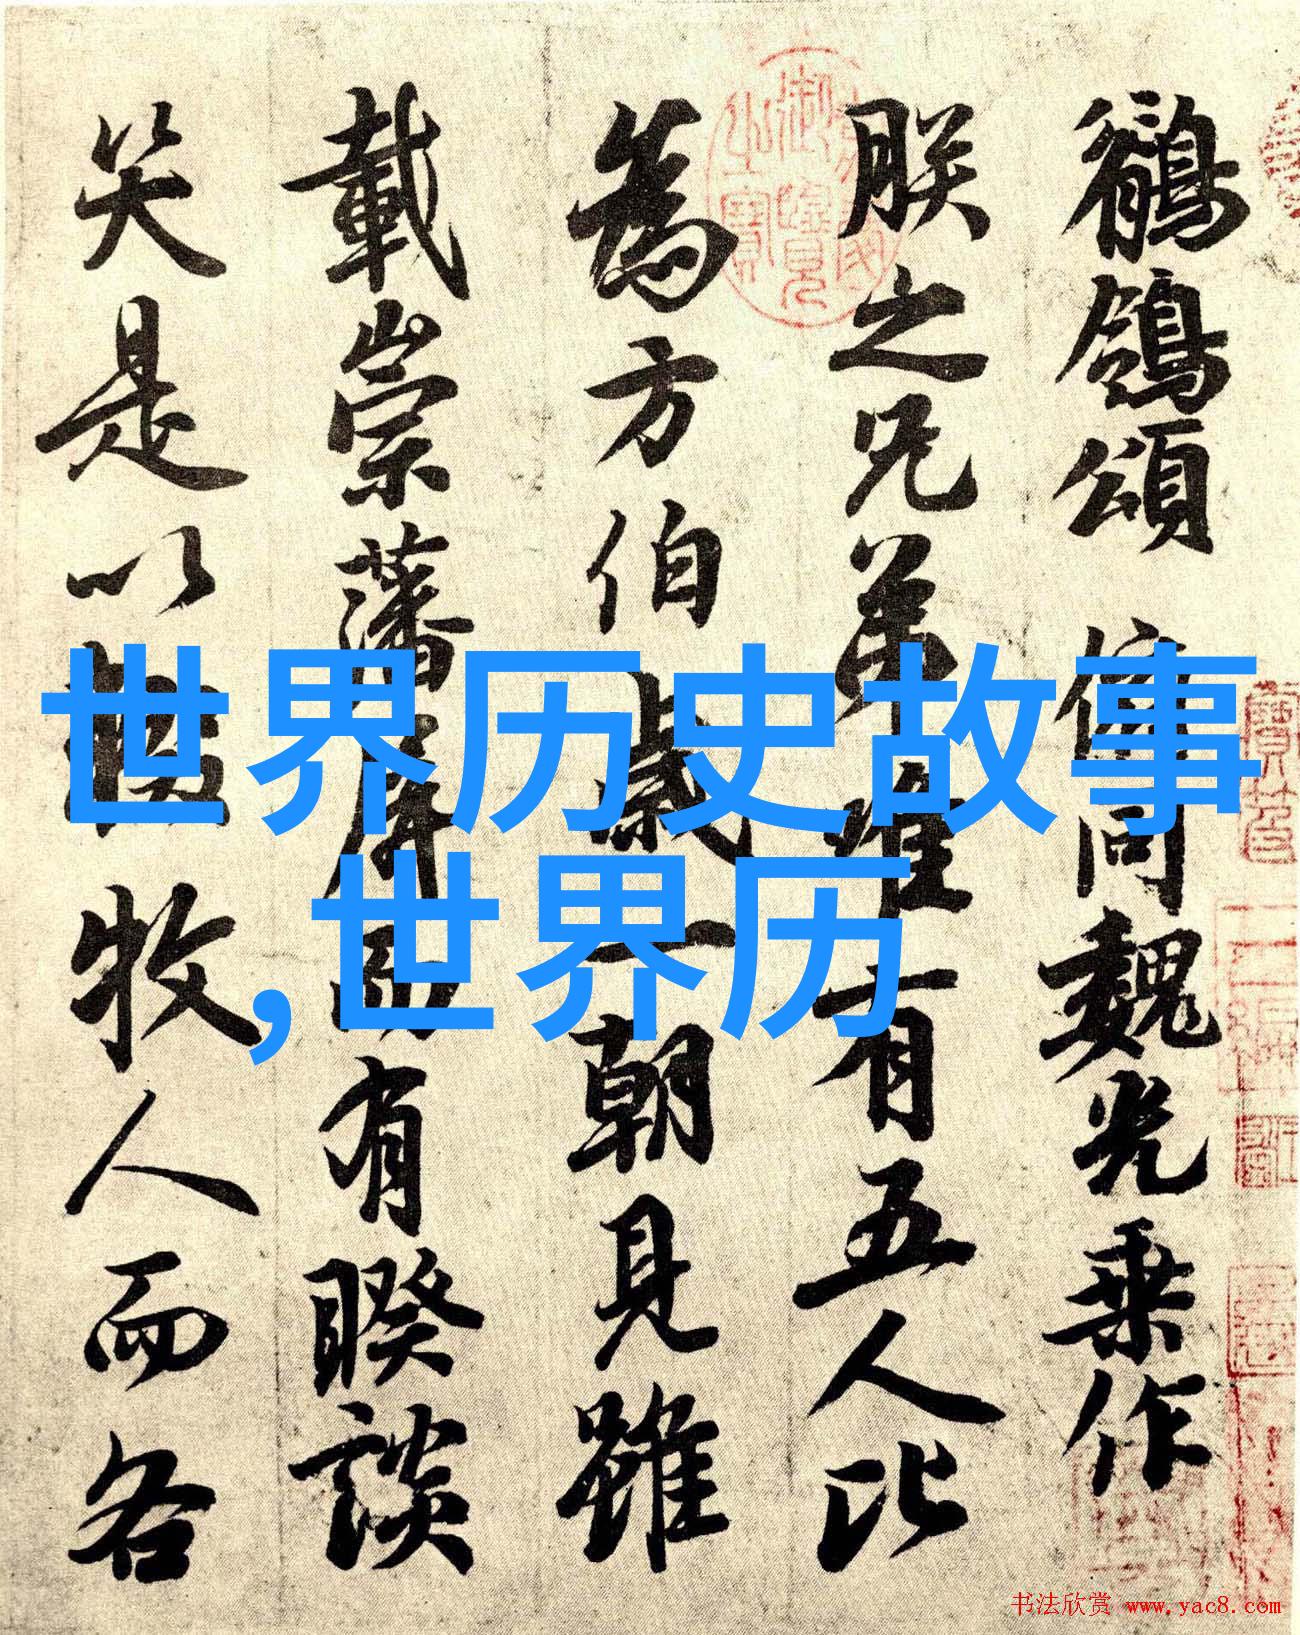 鶺鴒頌 俯同魏光乘作
朕之兄弟唯有五人比
為方伯歲一朝見雖
載崇藩屏而有睽談
笑是以輟牧人而各
世界历史故事
,世界历
书法欣赏 www.yac8.com